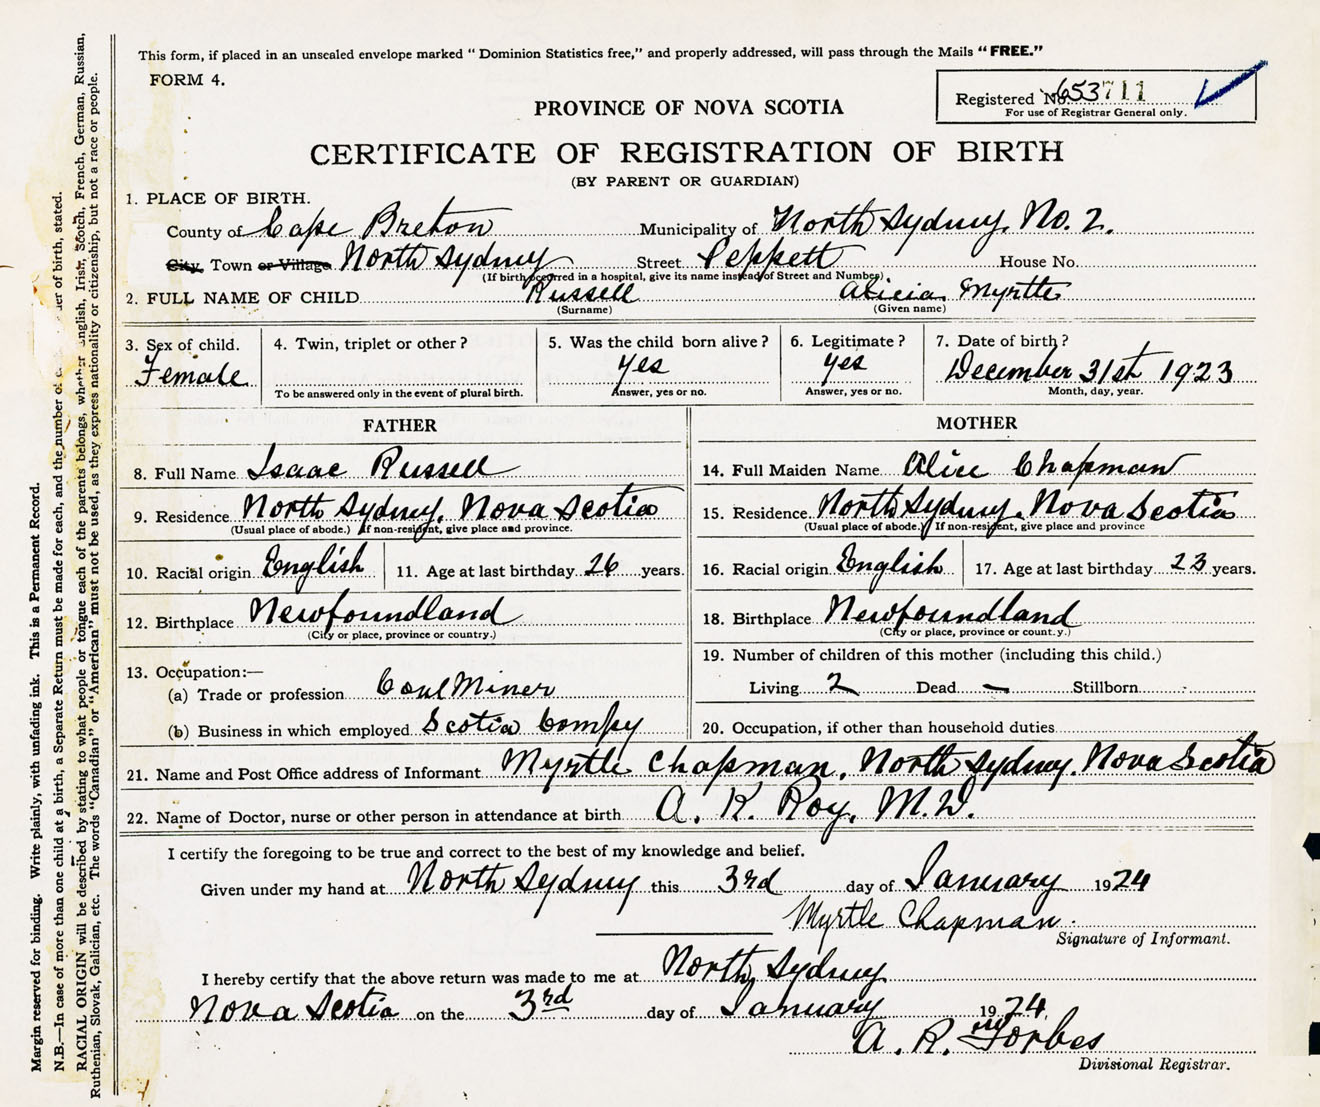 This form, if placed in an unsealed envelope marked "Dominion Statistics free," and properly addressed, will pass through the Mails "FREE."
FORM 4.
Registered No. 653711
For use of Registrar General only.
PROVINCE OF NOVA SCOTIA
CERTIFICATE OF REGISTRATION OF BIRTH
(BY PARENT OR GUARDIAN)
1. PLACE OF BIRTH.
County of Cape Breton Municipality of North Sydney, No. 2.
City, Town or Village North Sydney Street Peppett House No.
(If birth occurred in a hospital, give its name instead of Street and Number)
2. FULL NAME OF CHILD Russell Alicia Myrtle
(Surname) (Given name)
3. Sex of child. 4. Twin, triplet or other? 5. Was the child born alive? 6. Legitimate? 7. Date of birth?
Female yes yes December 31st 1923
To be answered only in the event of plural birth. Answer, yes or no. Answer, yes or no. Month, day, year.
FATHER MOTHER
8. Full Name Isaac Russell 14. Full Maiden Name Alice Chapman
9. Residence North Sydney, Nova Scotia 15. Residence North Sydney, Nova Scotia
(Usual place of abode.) If non-resident, give place and province. (Usual place of abode.) If non-resident, give place and province
10. Racial origin English 11. Age at last birthday 26 years. 16. Racial origin English 17. Age at last birthday 23 years.
12. Birthplace Newfoundland 18. Birthplace Newfoundland
(City or place, province or country.) (City or place, province or country.)
13. Occupation:— 19. Number of children of this mother (including this child.)
(a) Trade or profession Coal Miner Living 2 Dead — Stillborn
(b) Business in which employed Scotia Compy 20. Occupation, if other than household duties
21. Name and Post Office address of Informant Myrtle Chapman, North Sydney, Nova Scotia
22. Name of Doctor, nurse or other person in attendance at birth A. K. Roy, M.D.
I certify the foregoing to be true and correct to the best of my knowledge and belief.
Given under my hand at North Sydney this 3rd day of January 1924
Myrtle Chapman.
Signature of Informant.
I hereby certify that the above return was made to me at North Sydney
Nova Scotia on the 3rd day of January 1924,
A. R. Forbes
Divisional Registrar.
Margin reserved for binding. Write plainly, with unfading ink. This is a Permanent Record.
N.B.—In case of more than one child at a birth, a Separate Return must be made for each, and the number of each of birth, stated.
RACIAL ORIGIN will be described by stating to what people or tongue each of the parents belongs, whether English, Irish, Scotch, French, German, Russian,
Ruthenian, Slovak, Galician, etc. The words "Canadian" or "American" must not be used, as they express nationality or citizenship, but not a race or people.